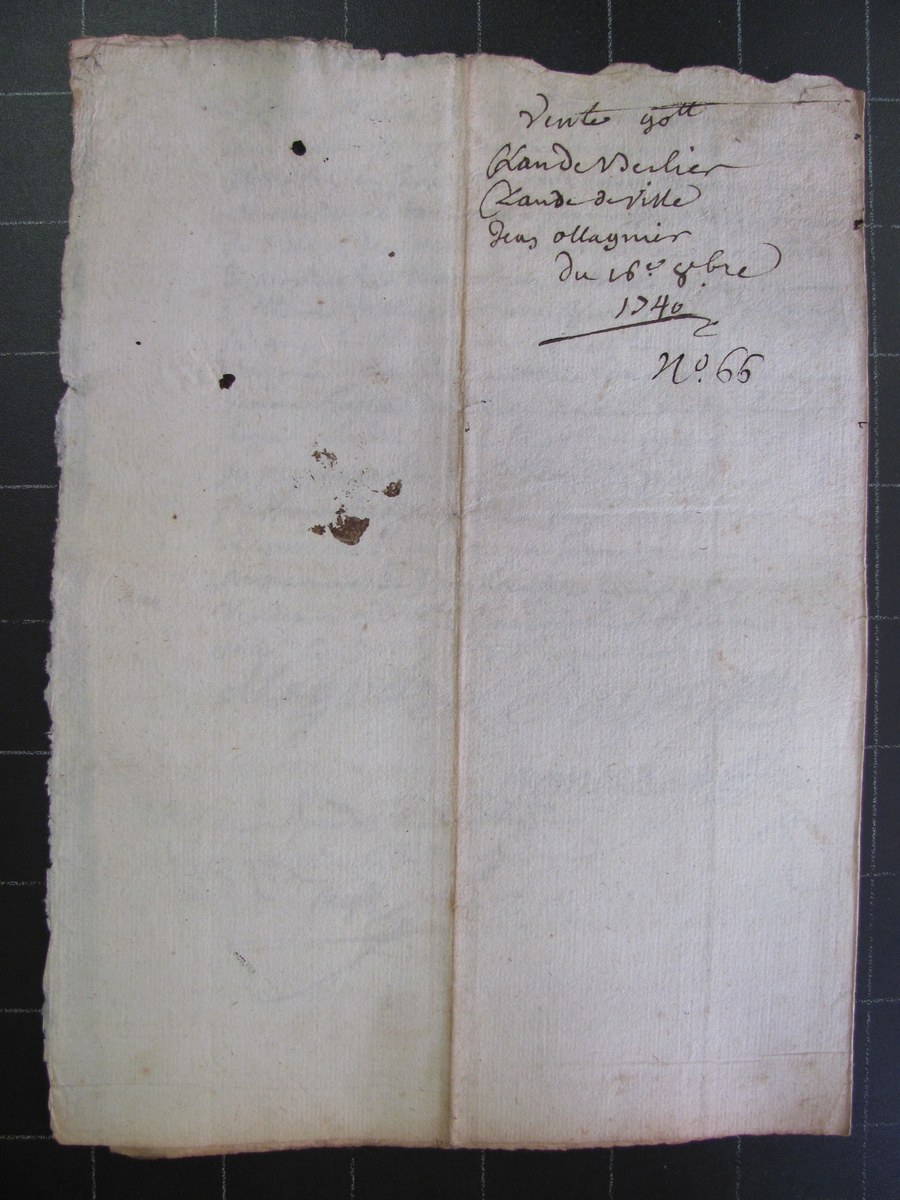 Vente 90tt
Claude Verlier
Claude de Ville
Jean ollagnier
du 16e 8bre
1740
No. 66